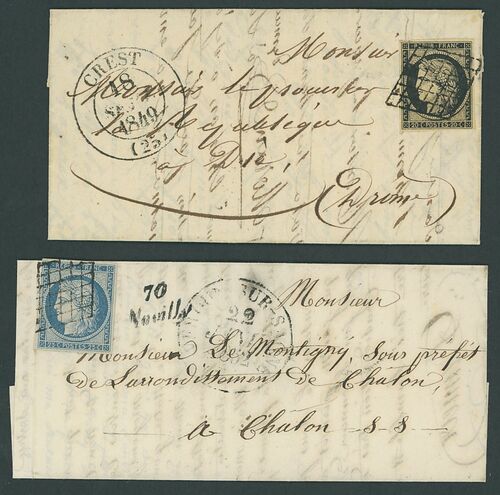 Monsieur
REPUB. FRANC.
20 C POSTES 20 C
CREST
18
1849
(25)
Monsieur le procureur
la République
à Die
(Drôme)
25 C POSTES 25 C
70
Noailly
SUR-S
22
Monsieur
Monsieur De Montigny, Sous préfet
de Larrondissement de Chalon,
a Chalon S. S.